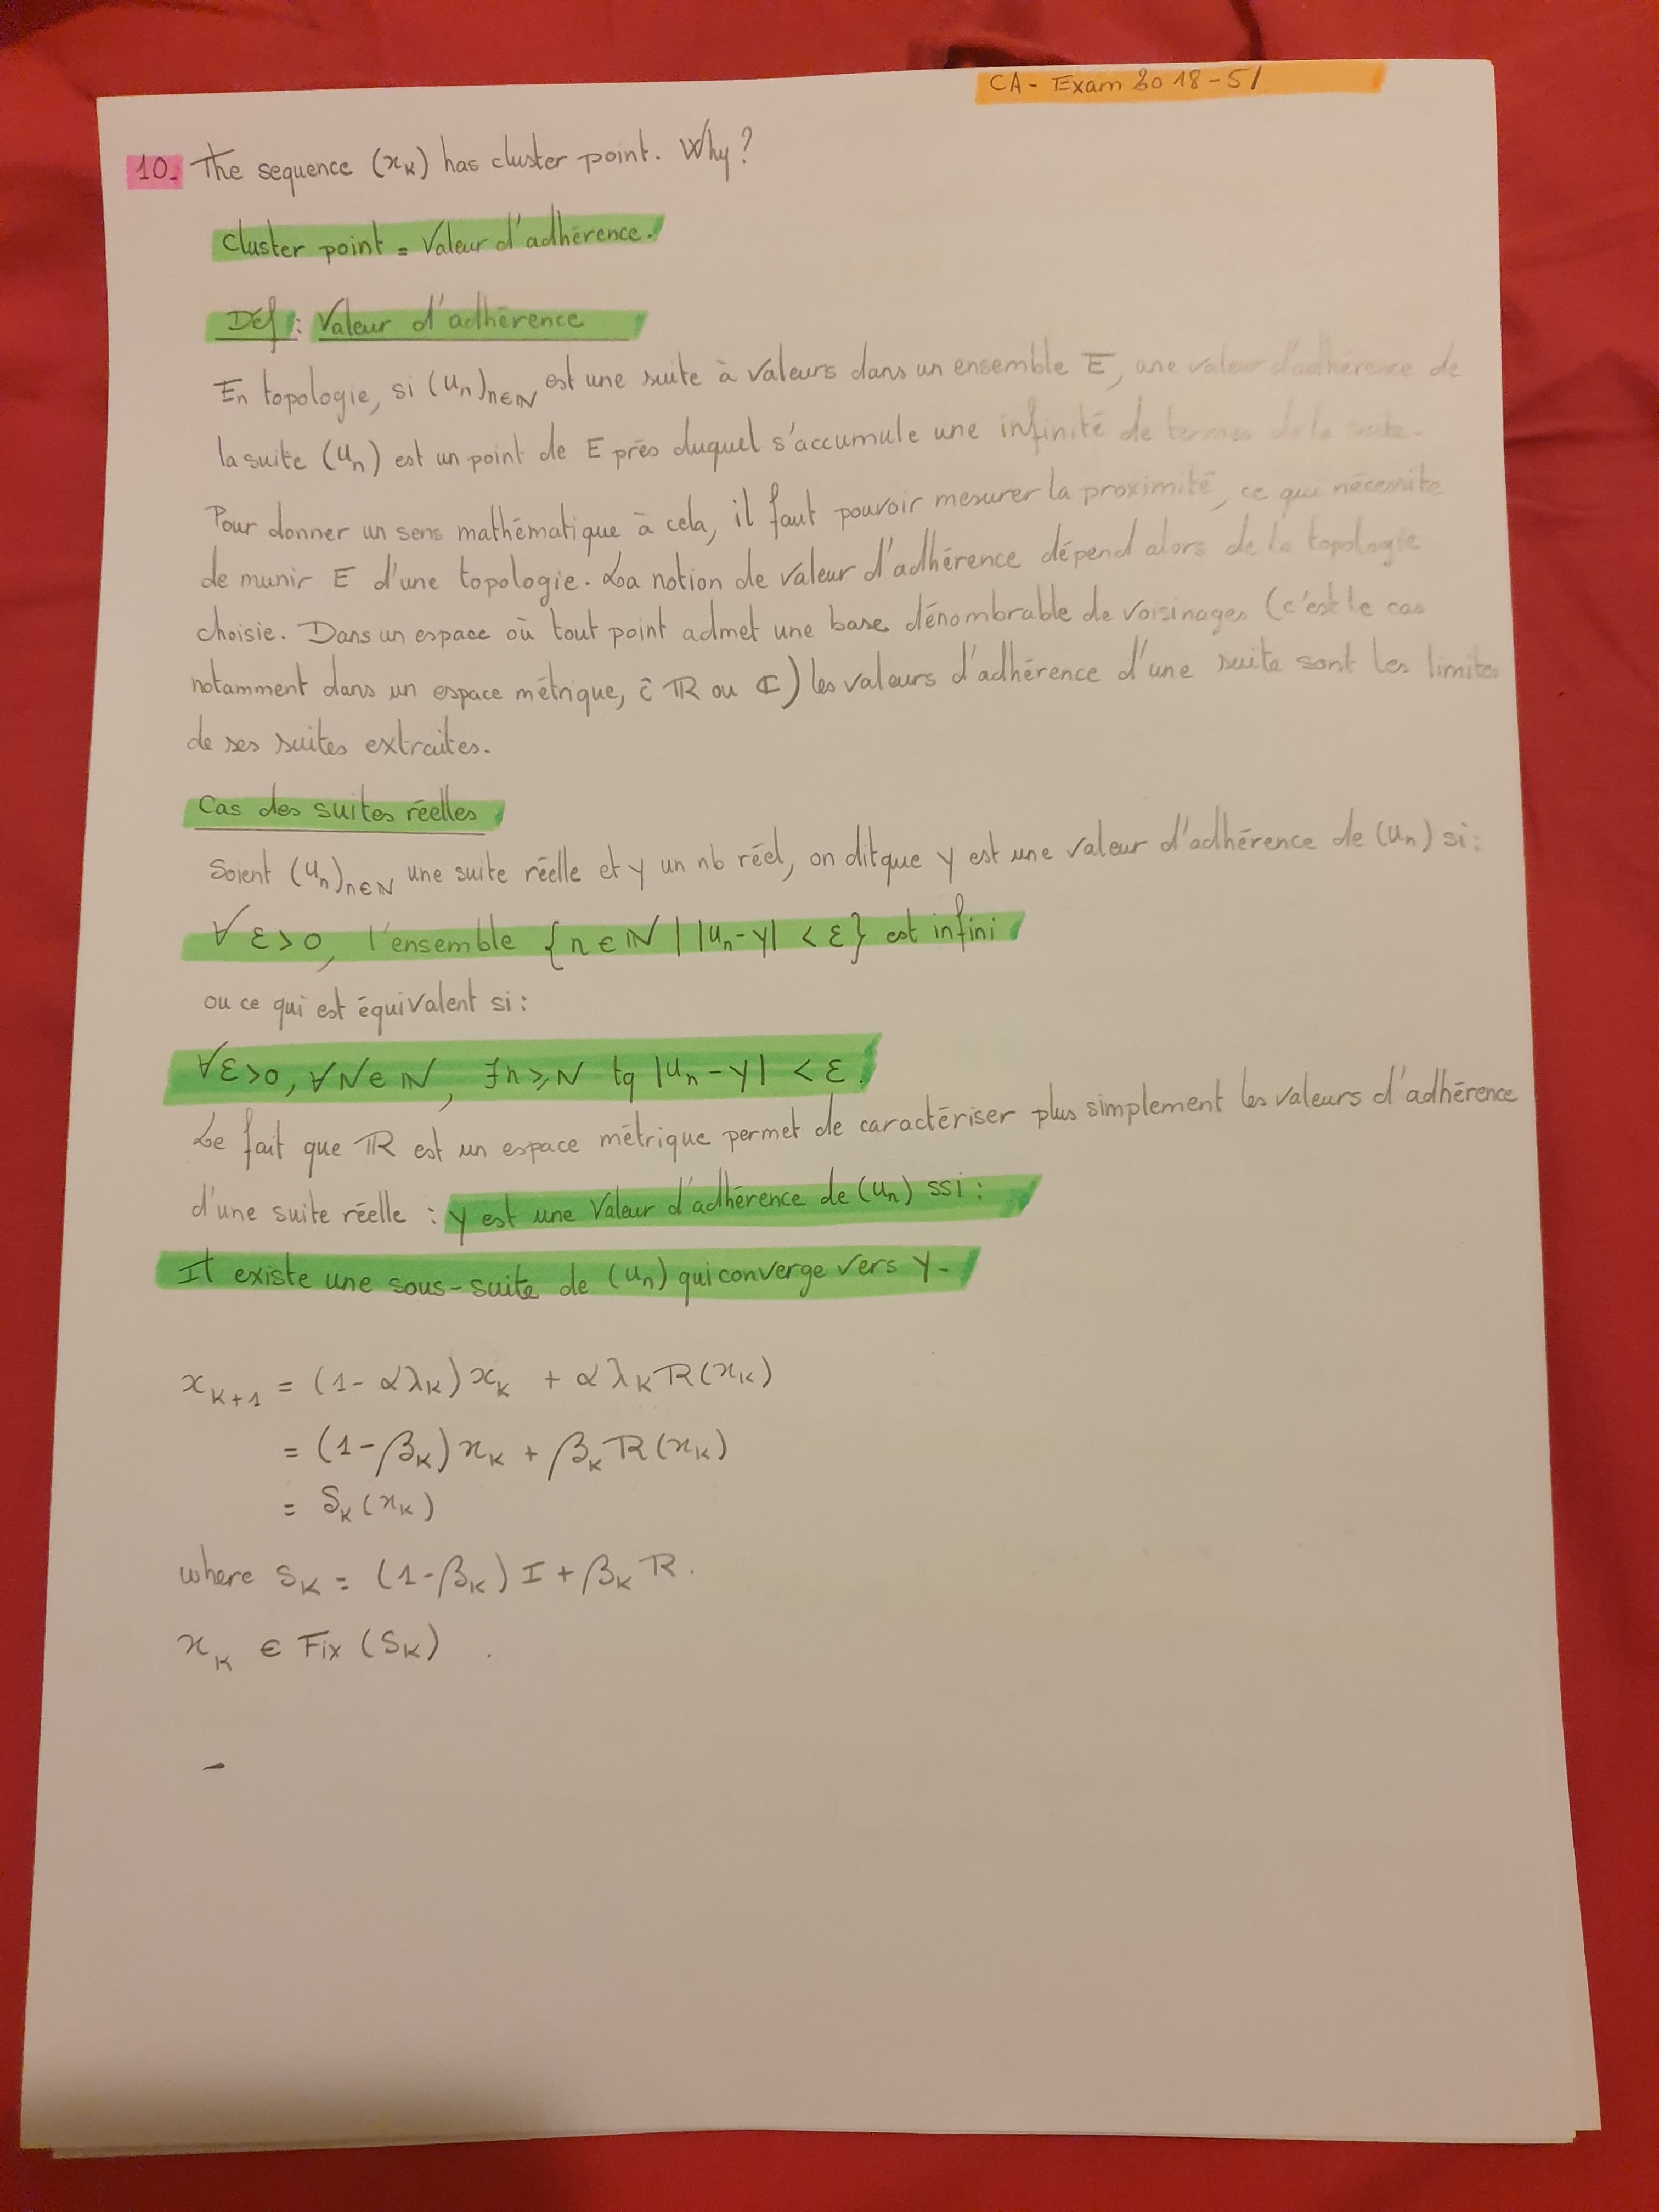 CA - Exam 2018 - 5/
10. The sequence (xₖ) has cluster point. Why?
Cluster point = Valeur d'adhérence.
Déf : Valeur d'adhérence
En topologie, si (uₙ)ₙ∈ℕ est une suite à valeurs dans un ensemble E, une valeur d'adhérence de
la suite (uₙ) est un point de E près duquel s'accumule une infinité de termes de la suite.
Pour donner un sens mathématique à cela, il faut pouvoir mesurer la proximité, ce qui nécessite
de munir E d'une topologie. La notion de valeur d'adhérence dépend alors de la topologie
choisie. Dans un espace où tout point admet une base dénombrable de voisinages (c'est le cas
notamment dans un espace métrique, ĉ ℝ ou ℂ) les valeurs d'adhérence d'une suite sont les limites
de ses suites extraites.
Cas des suites réelles
Soient (uₙ)ₙ∈ℕ une suite réelle et y un nb réel, on dit que y est une valeur d'adhérence de (uₙ) si :
∀ ε > 0, l'ensemble {n ∈ ℕ | |uₙ - y| < ε} est infini
ou ce qui est équivalent si :
∀ε>0, ∀N∈ℕ, ∃n⩾N tq |uₙ - y| < ε.
Le fait que ℝ est un espace métrique permet de caractériser plus simplement les valeurs d'adhérence
d'une suite réelle : y est une valeur d'adhérence de (uₙ) ssi :
It existe une sous-suite de (uₙ) qui converge vers y.
xₖ₊₁ = (1 - αλₖ) xₖ + αλₖ R(xₖ)
= (1 - βₖ) xₖ + βₖ R(xₖ)
= Sₖ(xₖ)
where Sₖ = (1 - βₖ) I + βₖ R.
xₖ ∈ Fix (Sₖ) .
-